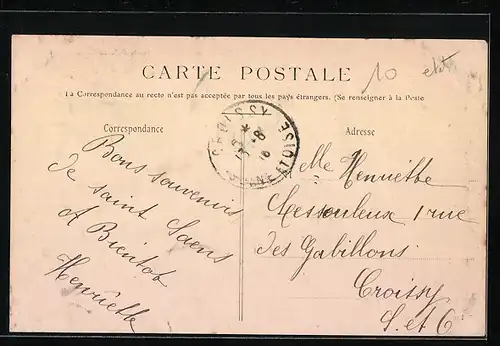 10
CARTE POSTALE
La Correspondance au recto n'est pas acceptée par tous les pays étrangers. (Se renseigner à la Poste
Correspondance
Adresse
CROISSY
SEINE ET OISE
Bons souvenirs
de saint Saens
A Bientot
Henriette
Mlle Henriette
1 rue
des Gabillons
Croissy
S. et O